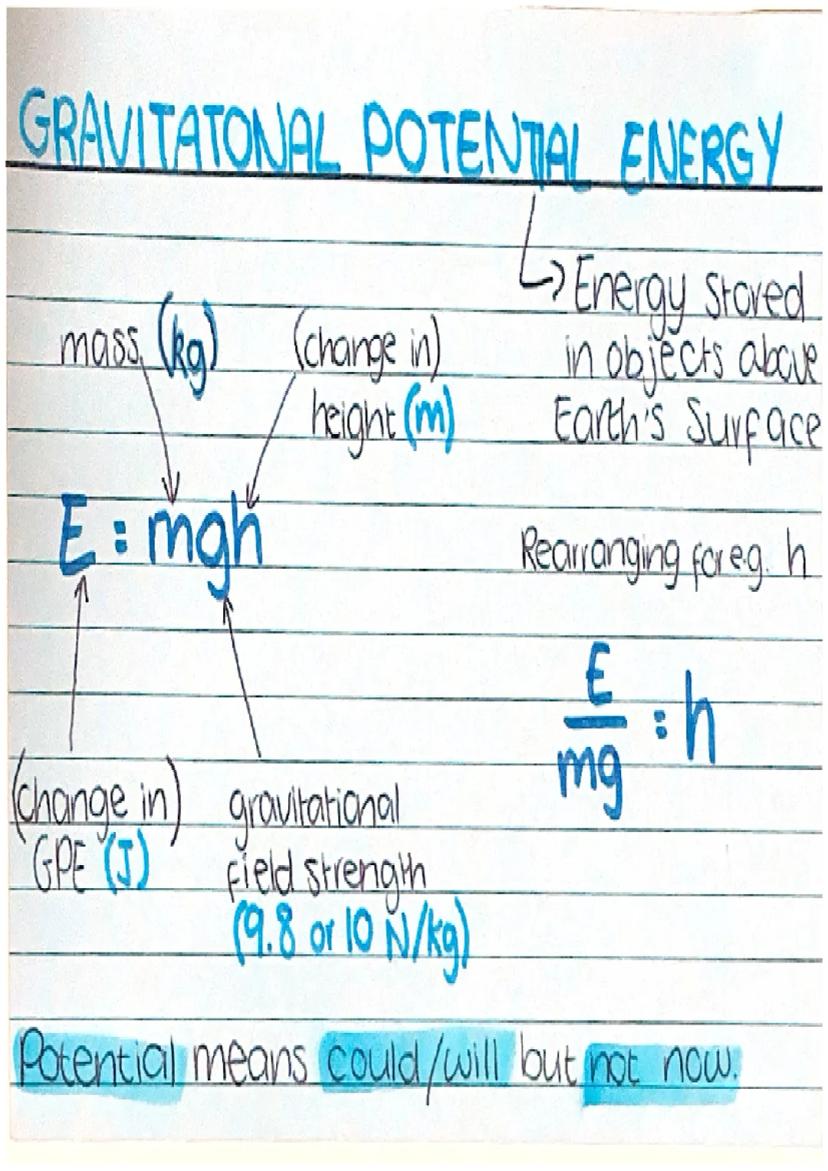 GRAVITATONAL POTENTIAL ENERGY
Energy stored
in objects above
Earth's Surface
mass (kg)
(change in)
height (m)
E = mgh
Rearranging for e.g. h
E
mg
= h
(change in)
GPE (J)
gravitational
field strength
(9.8 or 10 N/kg)
Potential means could/will but not now.